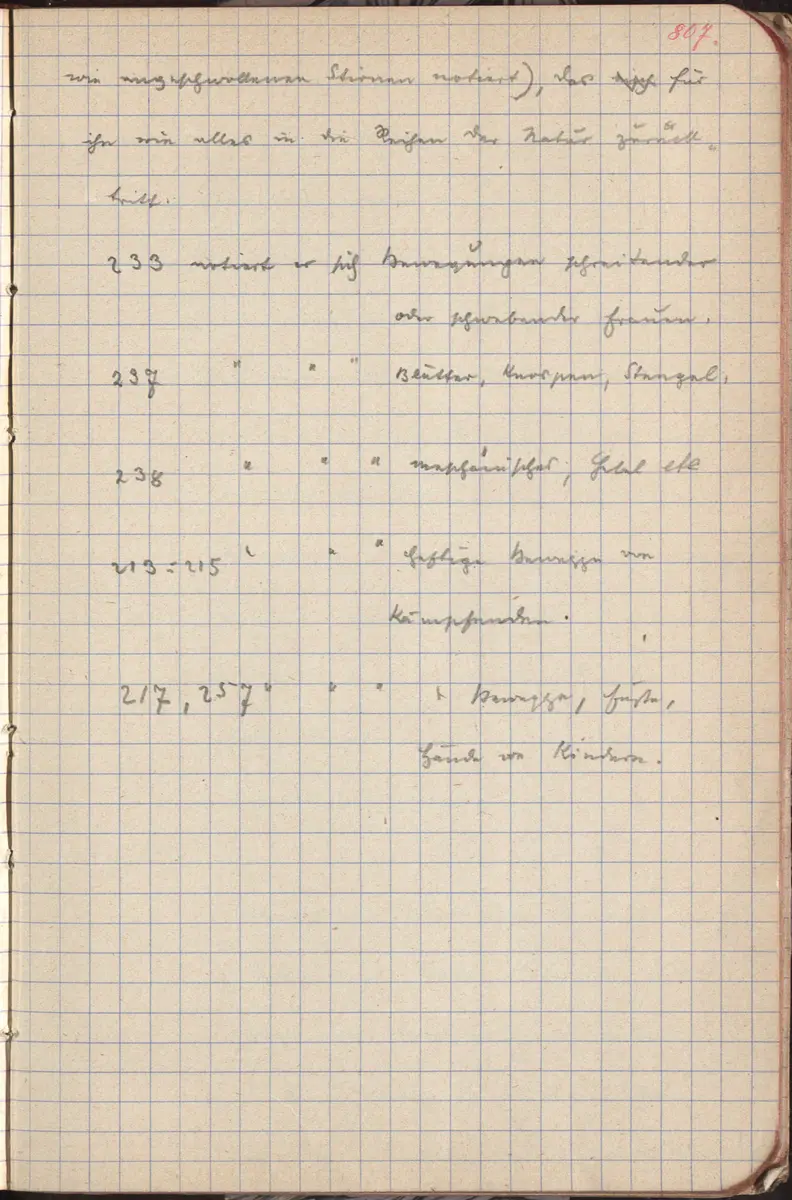 807.
wie angeschwollenen Stirnen notiert), das für
ihn wie alles in die Reihen der Natur zurück„
tritt.
233 notiert er sich Bewegungen schreitender
oder schwebender Frauen.
237 " " " Blätter, Knospen, Stengel,
238 " " " mechanisches, Hebel etc
213-215 " " " heftige Beweggn von
Kämpfenden.
217, 257 " " " " Beweggn, Füße,
Hände von Kindern.